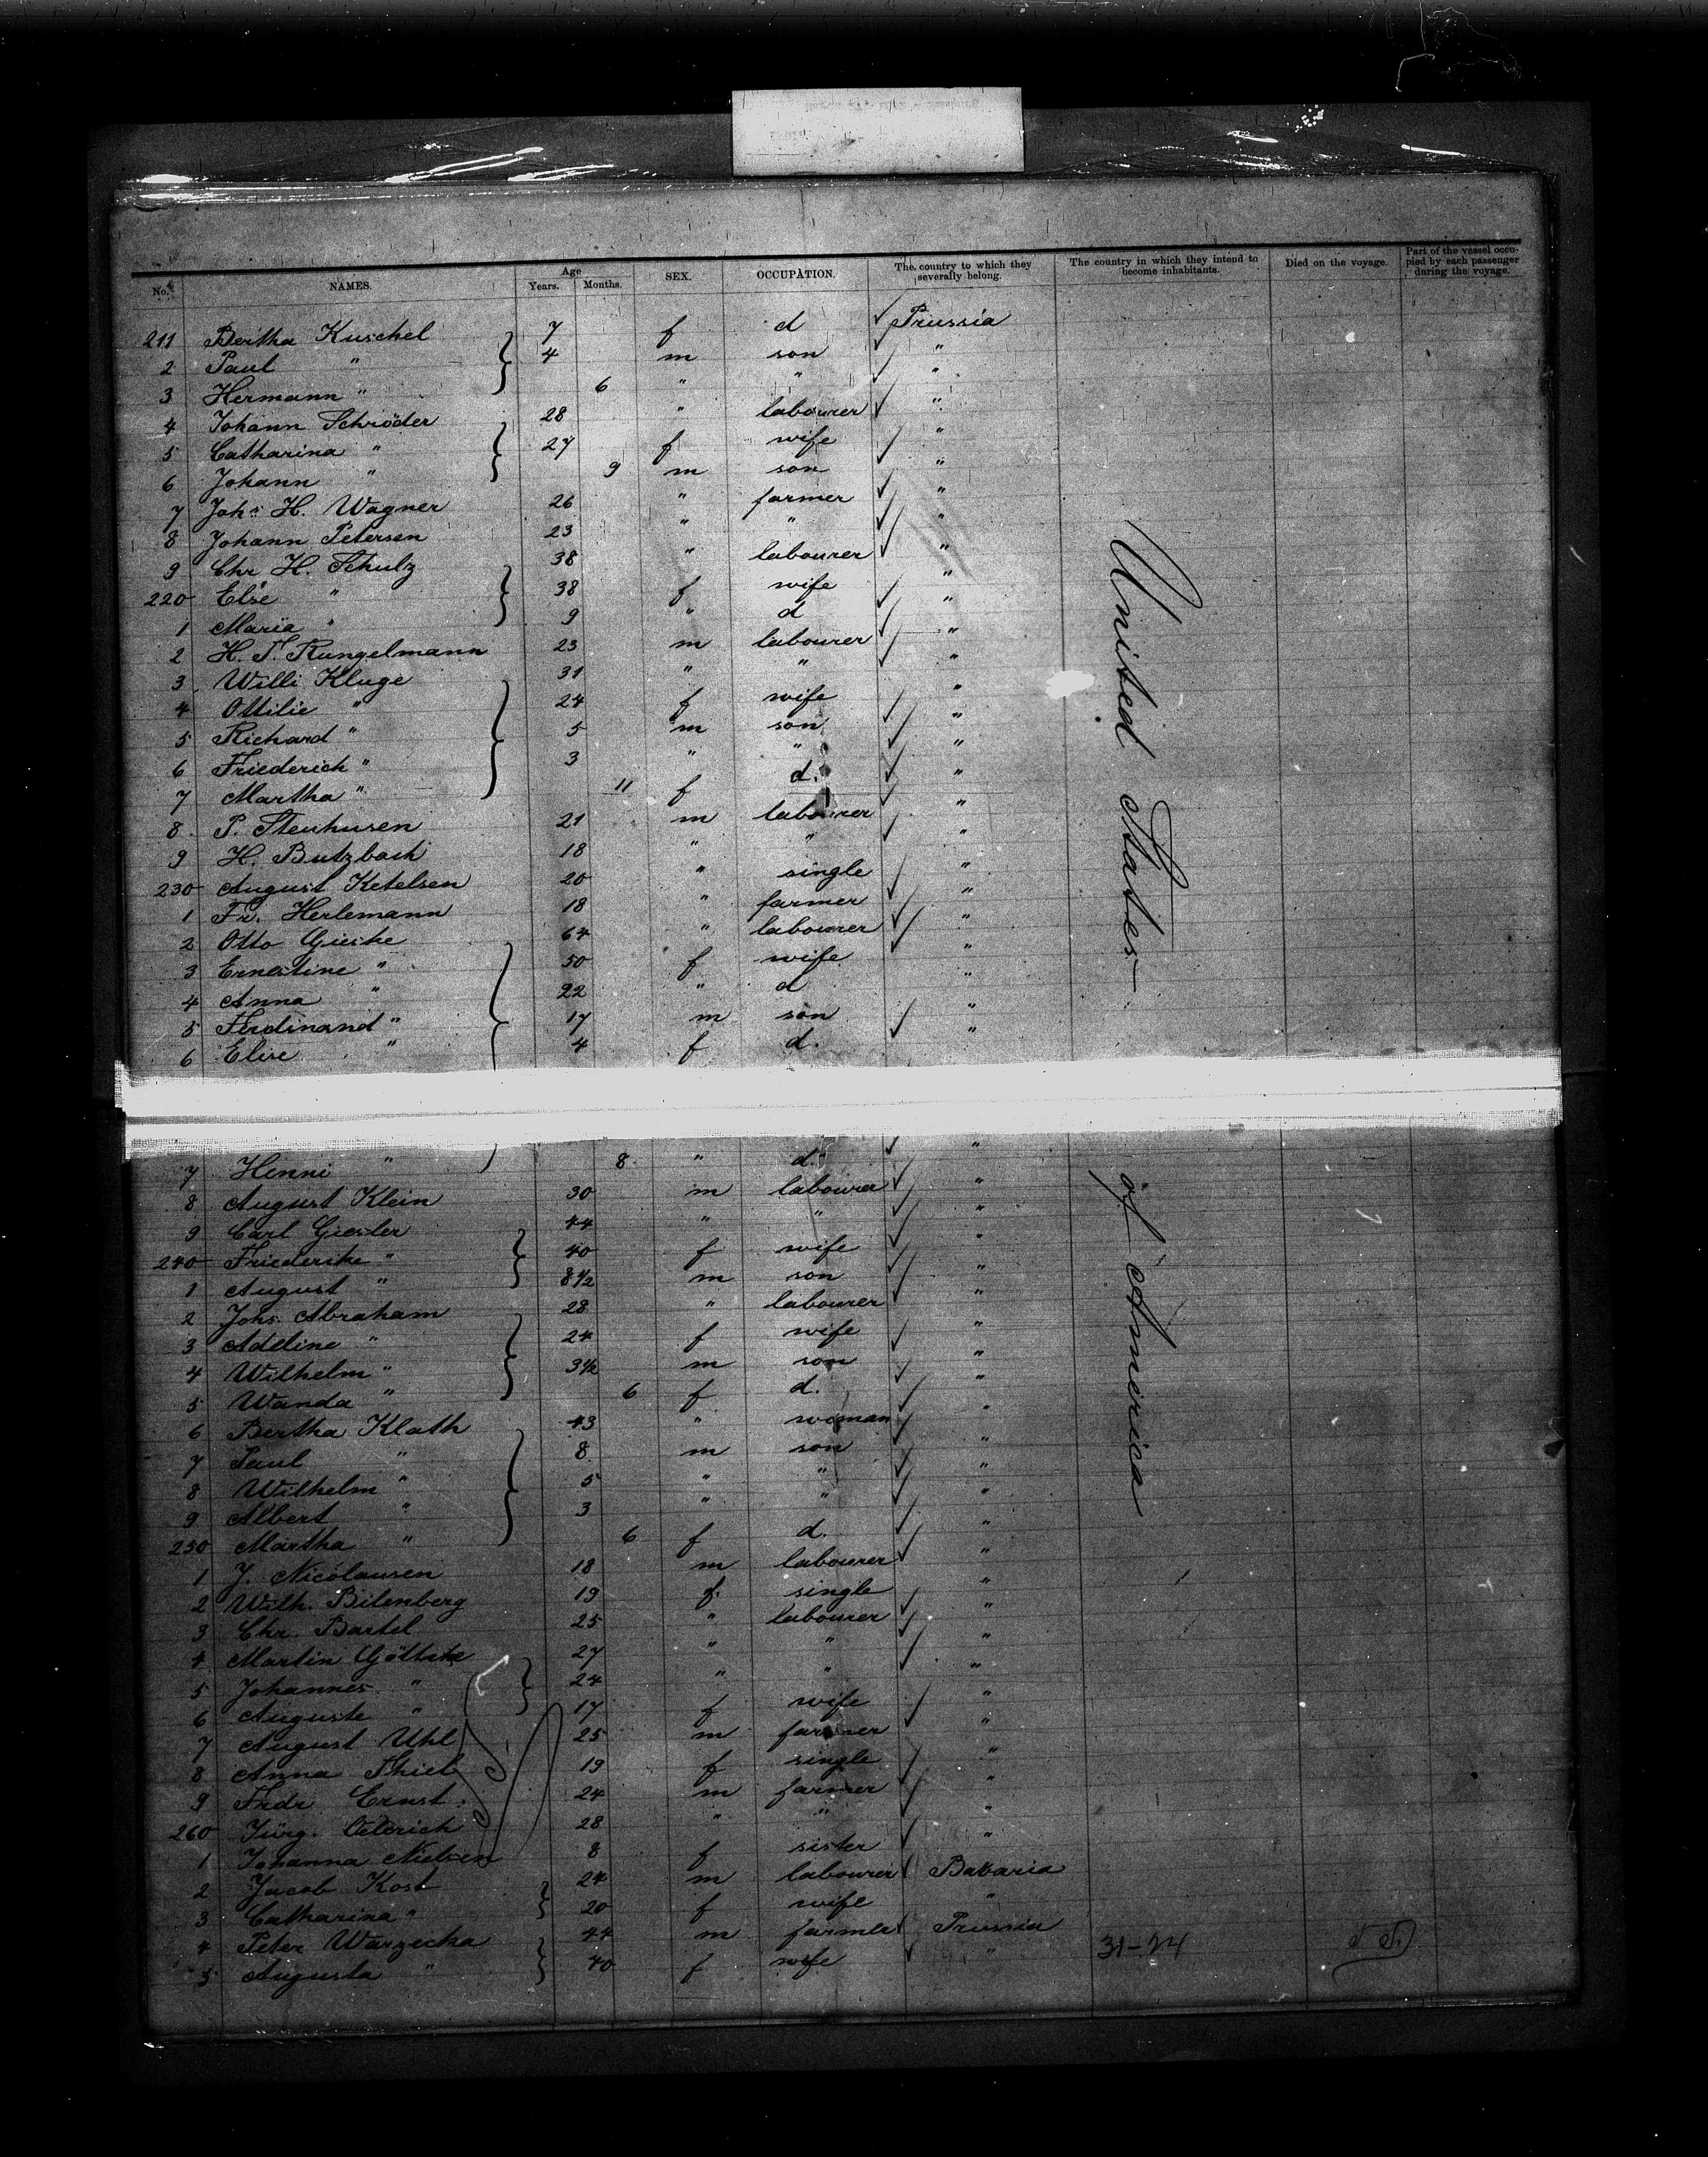 No. NAMES. Age Years. Months. SEX. OCCUPATION. The country to which they severally belong. The country in which they intend to become inhabitants. Died on the voyage. Part of the vessel occupied by each passenger during the voyage.
211 Bertha Kuschel 7 f d ✓ Prussia
2 Paul " 4 m son ✓ "
3 Hermann " 6 " " ✓ "
4 Johann Schröder 28 " labourer ✓ "
5 Catharina " 27 f wife ✓ "
6 Johann " 9 m son ✓ "
7 Johs H. Wagner 26 " farmer ✓ "
8 Johann Petersen 23 " " ✓ "
9 Chr. H. Schulz 38 " labourer ✓ "
220 Else " 38 f wife ✓ "
1 Maria " 9 " d ✓ "
2 H. T. Rungelmann 23 m labourer ✓ "
3 Willi Kluge 31 " " ✓ "
4 Ottilie " 24 f wife ✓ "
5 Richard " 5 m son ✓ "
6 Friederich " 3 " " ✓ "
7 Martha " 11 f d. ✓ "
8 P. Stenhusen 21 m labourer ✓ "
9 H. Butzbach 18 " " ✓ "
230 August Ketelsen 20 " single ✓ "
1 Fr. Herlemann 18 " farmer ✓ "
2 Otto Gieske 64 " labourer ✓ "
3 Ernestine " 50 f wife "
4 Anna " 22 " d "
5 Ferdinand " 17 m son ✓ "
6 Elise " 4 f d. "
7 Henni " 8 " d. ✓ "
8 August Klein 30 m labourer ✓ "
9 Carl Giesler 44 " " ✓ "
240 Friederike " 40 f wife ✓ "
1 August " 8 1/2 m son ✓ "
2 Johs. Abraham 28 " labourer ✓ "
3 Adeline " 24 f wife ✓ "
4 Wilhelm " 3 1/2 m son ✓ "
5 Wanda " 6 f d. ✓ "
6 Bertha Klath 43 " woman ✓ "
7 Paul " 8 m son ✓ "
8 Wilhelm " 5 " " ✓ "
9 Albert " 3 " " ✓ "
250 Martha " 6 f d. ✓ "
1 J. Nicolausen 18 m labourer ✓ "
2 Wilh. Bilenberg 19 f. single ✓ "
3 Chr. Bartel 25 " labourer ✓ "
4 Martin Göttske 27 " " ✓ "
5 Johannes " 24 " " "
6 Auguste " 17 f wife ✓ "
7 August Uhl 25 m farmer "
8 Anna Thiel 19 f single ✓ "
9 Frdr Ernst 24 m farmer ✓ "
260 Jürg. Oelerich 28 " " ✓ "
1 Johanna Nielsen 8 f sister "
2 Jacob Kost 24 m labourer ✓ Bavaria
3 Catharina " 20 f wife "
4 Peter Warzecha 44 m farmer ✓ Prussia
5 Augusta " 40 f wife ✓ "
United States of America
31-24